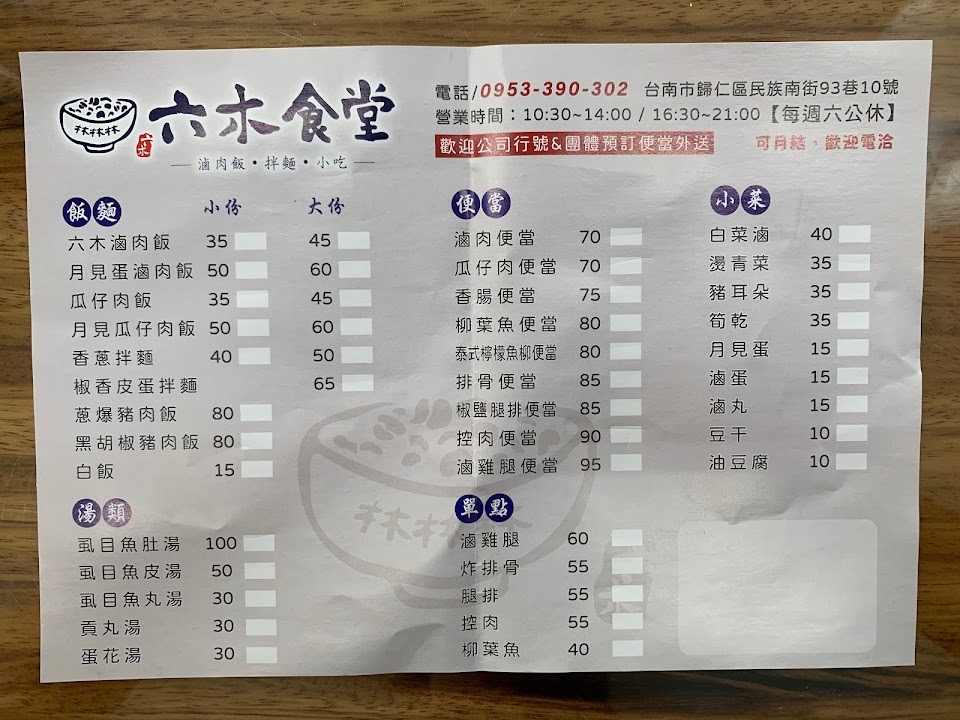 六木食堂
滷肉飯・拌麵・小吃
林林林
六木
電話/0953-390-302 台南市歸仁區民族南街93巷10號
營業時間：10:30~14:00 / 16:30~21:00【每週六公休】
歡迎公司行號&團體預訂便當外送 可月結，歡迎電洽
飯麵 小份 大份
六木滷肉飯 35 45
月見蛋滷肉飯 50 60
瓜仔肉飯 35 45
月見瓜仔肉飯 50 60
香蔥拌麵 40 50
椒香皮蛋拌麵 65
蔥爆豬肉飯 80
黑胡椒豬肉飯 80
白飯 15
湯類
虱目魚肚湯 100
虱目魚皮湯 50
虱目魚丸湯 30
貢丸湯 30
蛋花湯 30
便當
滷肉便當 70
瓜仔肉便當 70
香腸便當 75
柳葉魚便當 80
泰式檸檬魚柳便當 80
排骨便當 85
椒鹽腿排便當 85
控肉便當 90
滷雞腿便當 95
單點
滷雞腿 60
炸排骨 55
腿排 55
控肉 55
柳葉魚 40
小菜
白菜滷 40
燙青菜 35
豬耳朵 35
筍乾 35
月見蛋 15
滷蛋 15
滷丸 15
豆干 10
油豆腐 10
林林林